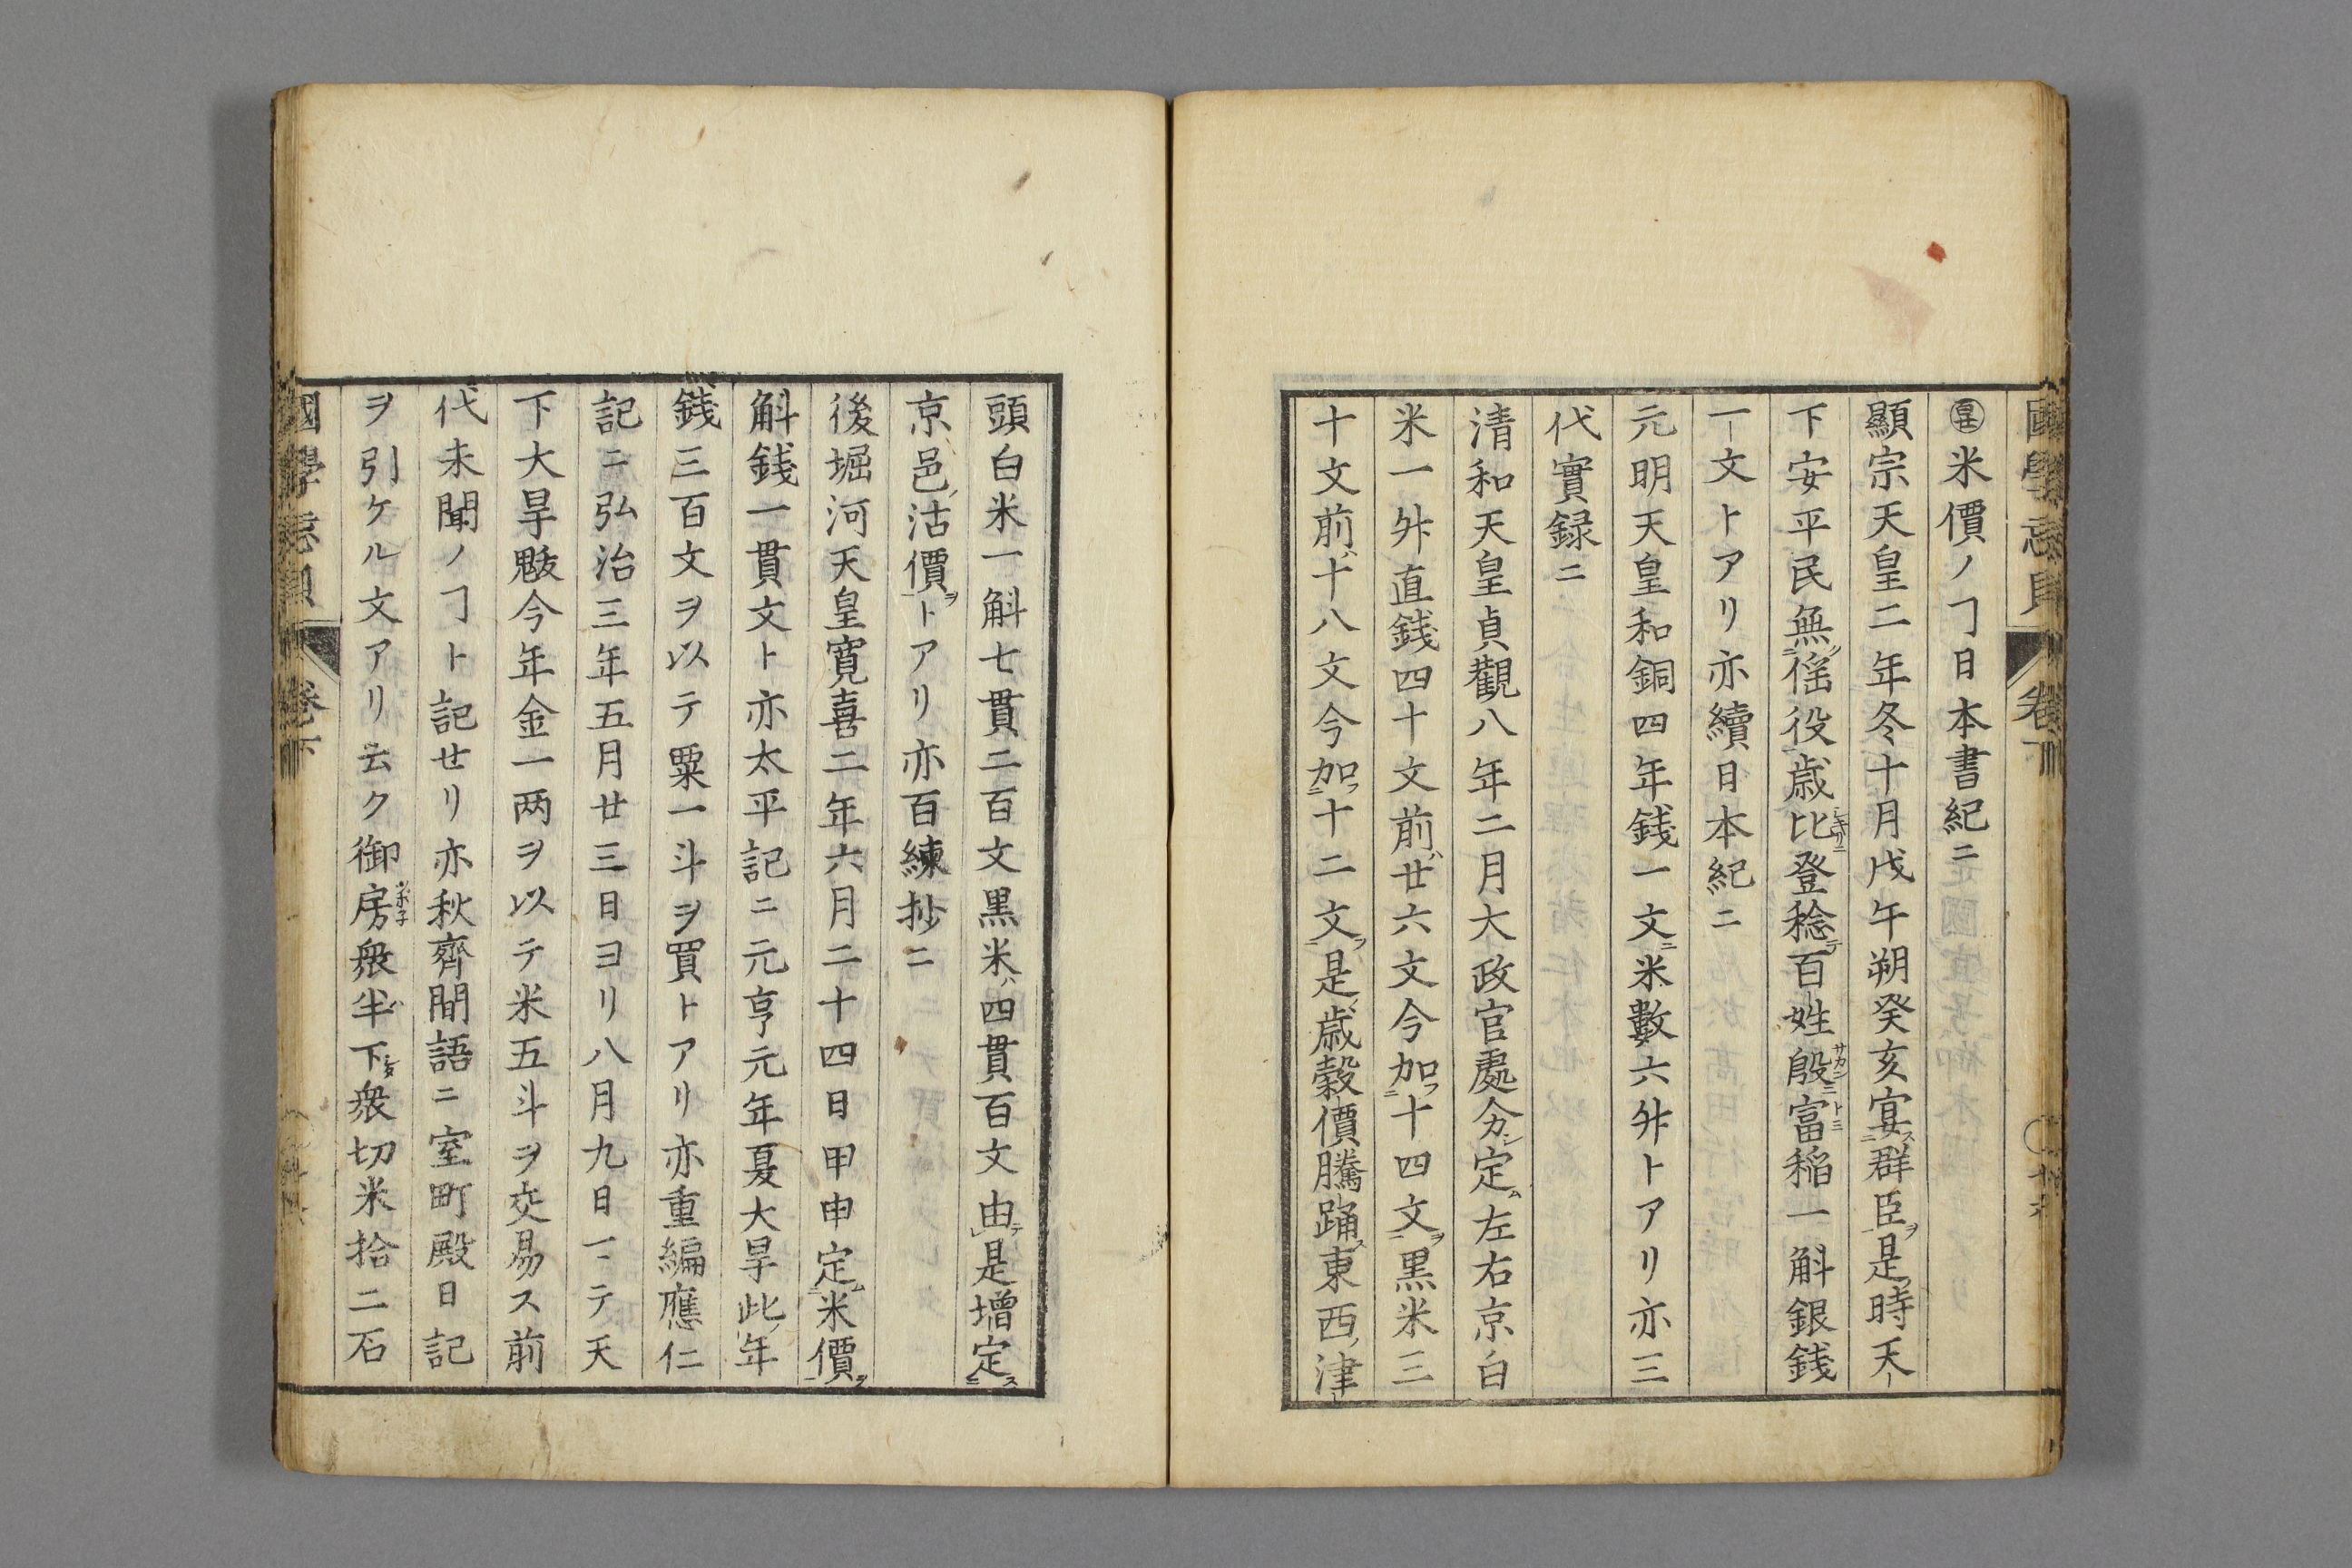 國學忘貝 卷下
米價ノヿ日本書紀ニ
顯宗天皇二年冬十月戊午朔癸亥宴ス二群臣ヲ一是時天
下安平民無ノ二徭役一歳比登稔テ百姓殷富稲一斛銀銭
一文トアリ亦續日本紀ニ
元明天皇和銅四年銭一文ニ米數六舛トアリ亦三
代實録ニ
清和天皇貞觀八年二月大政官處分シ定ム左右京白
米一舛直銭四十文前ハ廿六文今加フ二十四文ヲ一黒米三
十文前ハ十八文今加フ二十二文ヲ一是ノ歳穀價騰踊ス東西ノ津
頭白米一斛七貫二百文黒米ハ四貫百文由テレ是増定ス二
京邑ノ沽價ヲ一トアリ亦百練抄ニ
後堀河天皇寛喜二年六月二十四日甲申定ム二米價ヲ一
斛銭一貫文ト亦太平記ニ元亨元年夏大旱此ノ年
銭三百文ヲ以テ粟一斗ヲ買トアリ亦重編應仁
記ニ弘治三年五月廿三日ヨリ八月九日マテ天
下大旱魃今年金一两ヲ以テ米五斗ヲ交易ス前
代未聞ノヿト記せリ亦秋齊間語ニ室町殿日記
ヲ引ケル文アリ云ク御房衆半下衆切米拾二石
國學忘貝 卷下